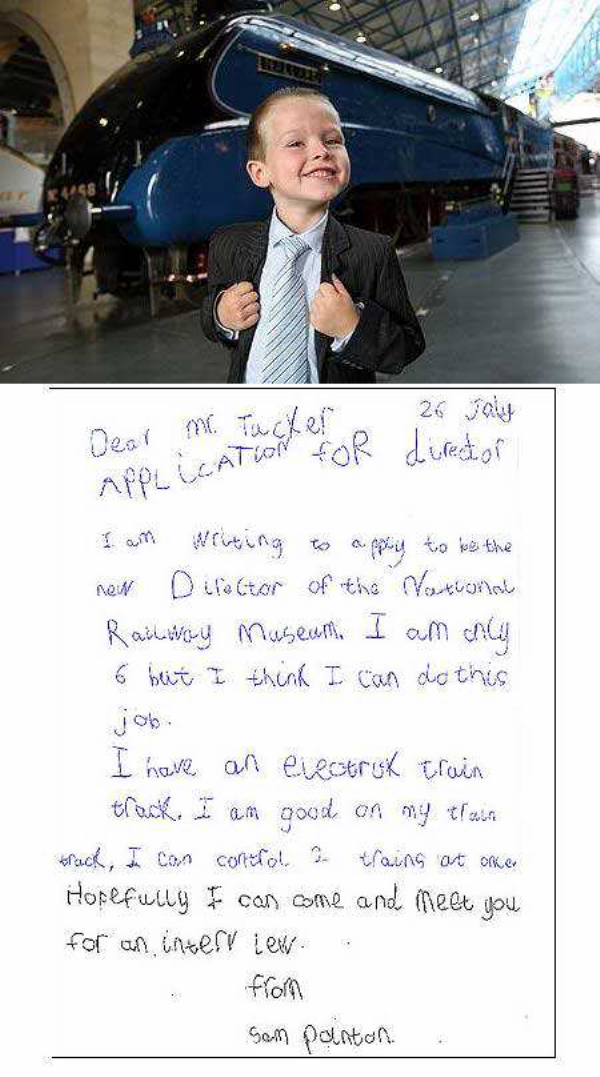 4468
26 July
Dear mr. Tucker
APPLiCATion foR director
I am writing to apply to be the
new Director of the National
Railway Museum. I am only
6 but I think I can do this
job.
I have an electrik train
track. I am good on my train
track, I can control 2 trains at once
Hopefully I can come and meet you
for an interview.
from
Sam pointon.